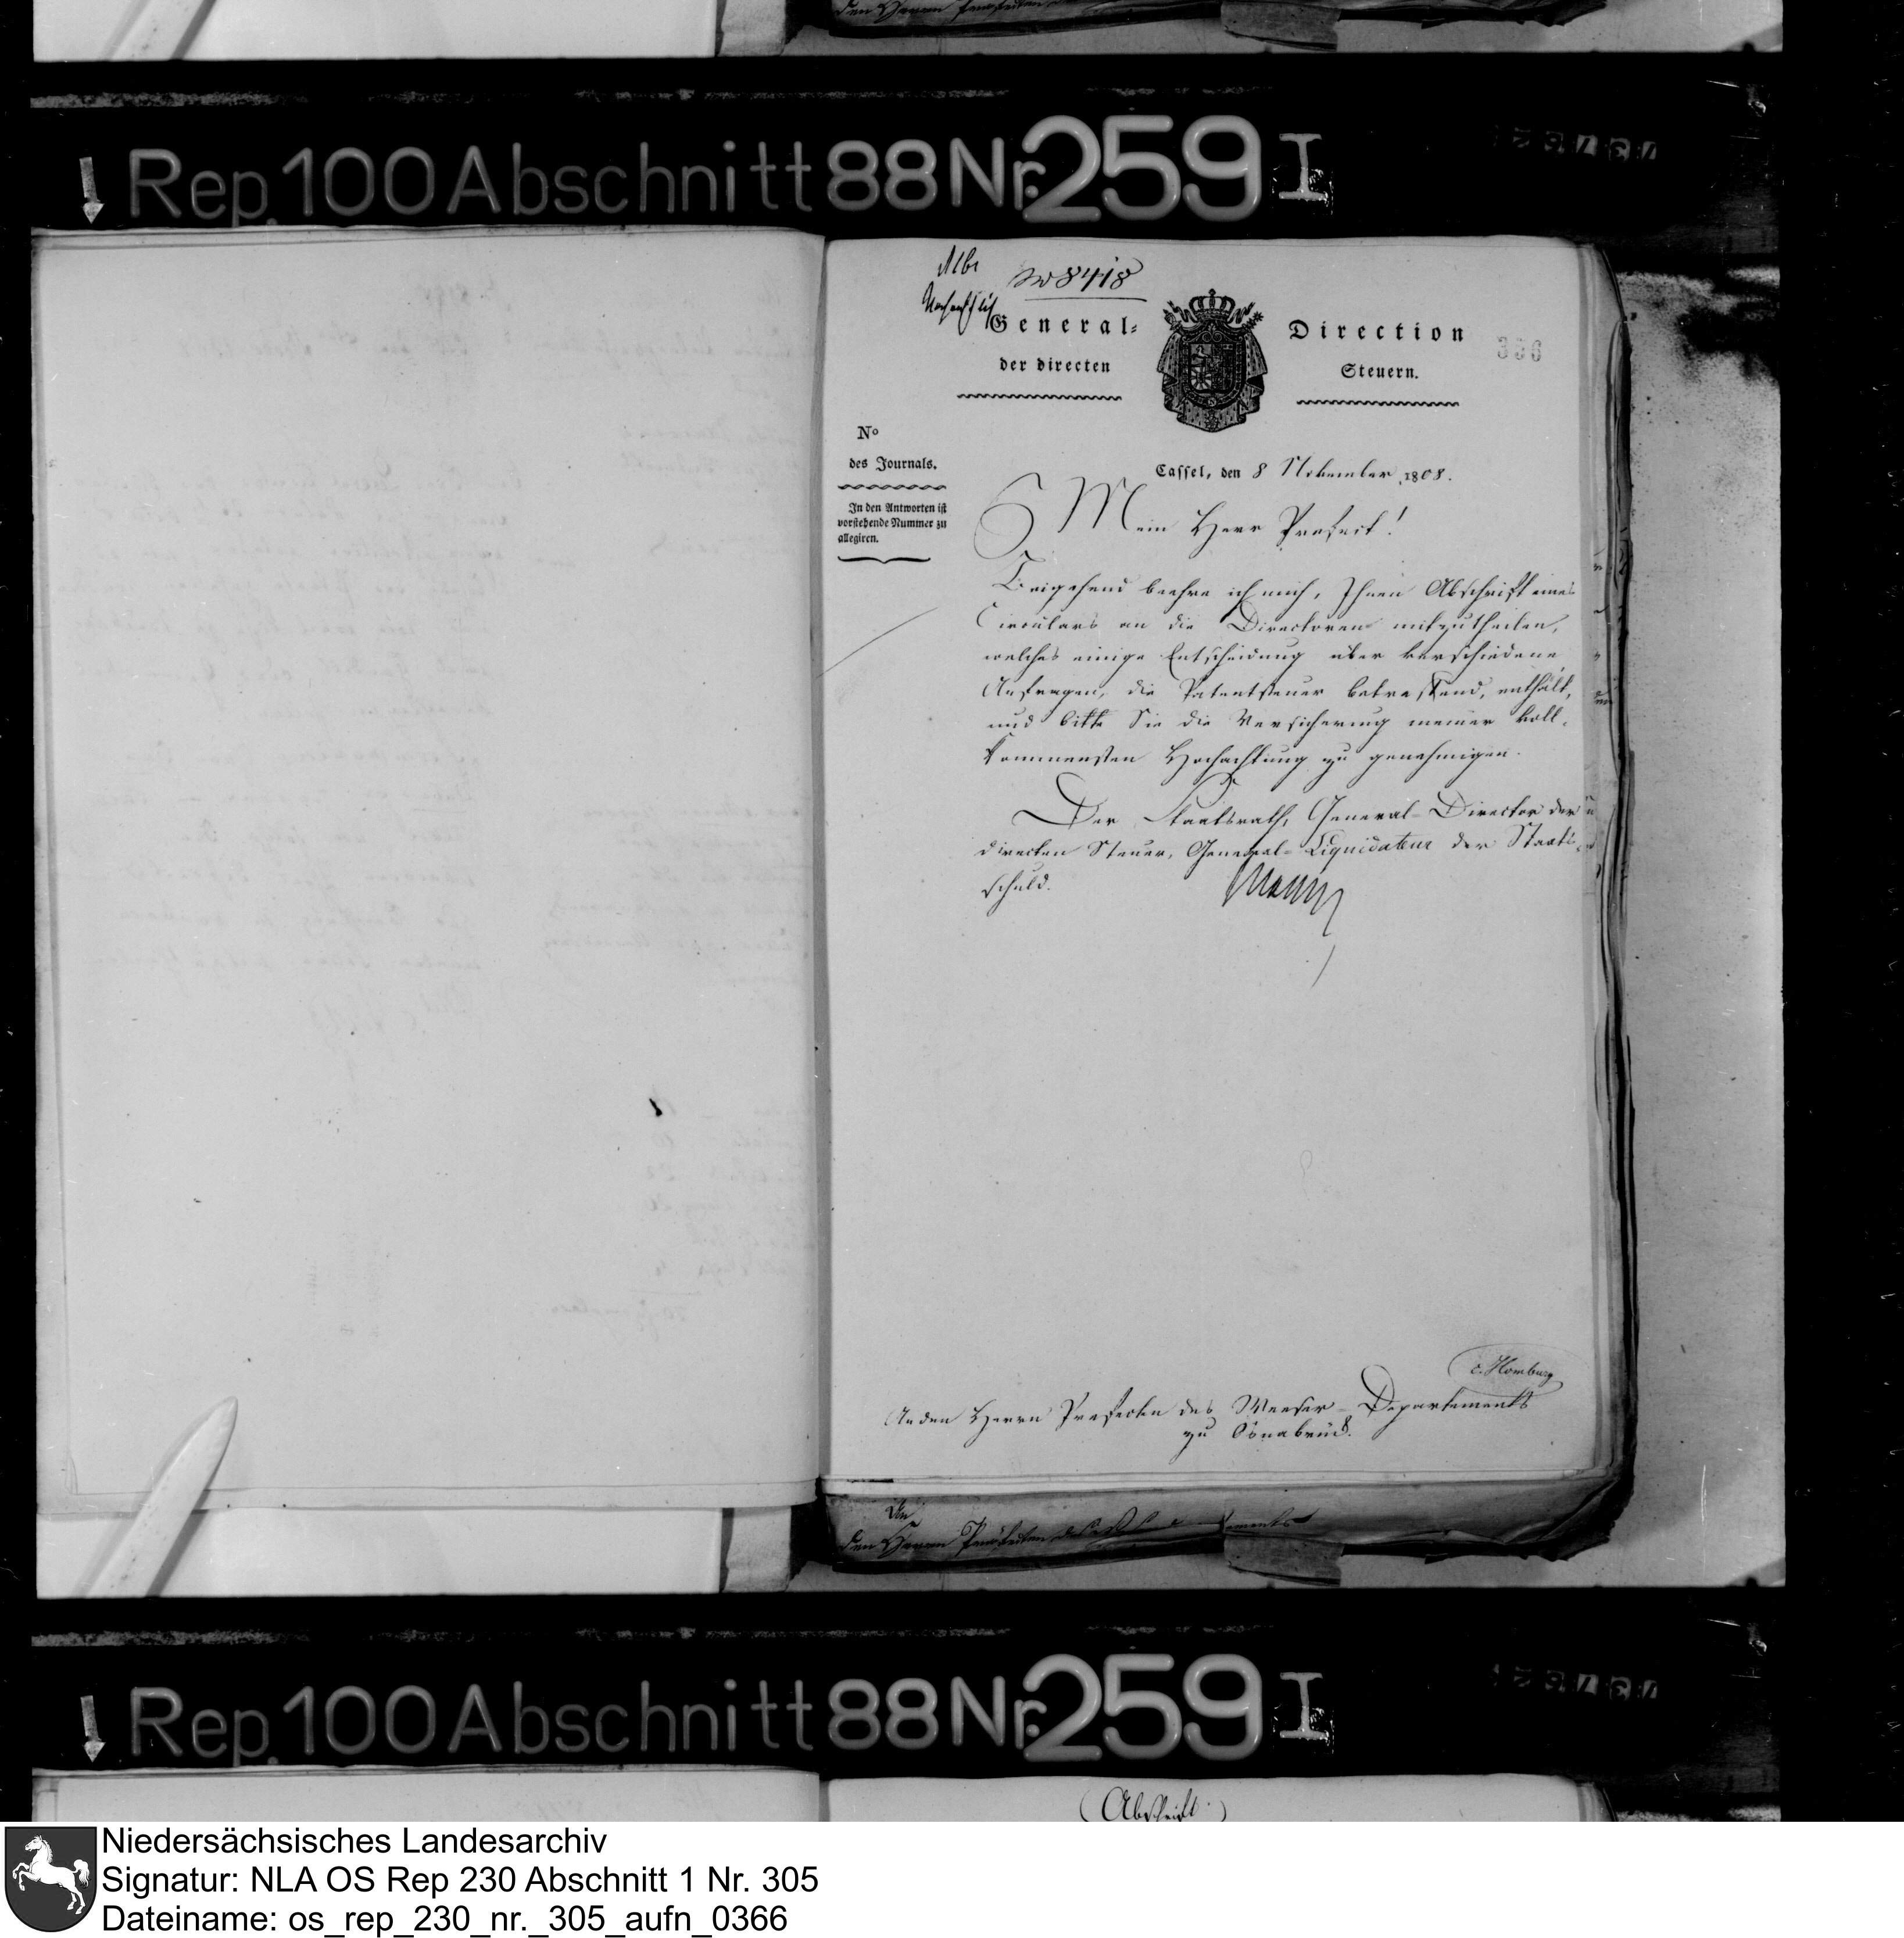 Rep. 100 Abschnitt 88 Nr. 259 I
No 8418
General- Direction
der directen Steuern.
396
No
des Journals.
In den Antworten ist
vorstehende Nummer zu
allegiren.
Cassel, den 8 November 1808.
Mein Herr Prefect!
Beigehend beehre ich mich, Ihnen Abschrift eines
Circulars an die Directoren mitzutheilen,
welches einige Entscheidung über verschiedene
Anfragen, die Patentsteuer betreffend, enthält,
und bitte Sie die Versicherung meiner voll-
kommensten Hochachtung zu genehmigen.
Der Staatsrath, General-Director der
directen Steuer, General-Liquidateur der Staats-
schuld.
c. Homburg
An den Herrn Prefecten des Weeser-Departements
zu Osnabrück.
An
den Herrn Präfecten
Rep. 100 Abschnitt 88 Nr. 259 I
(Abschrift.)
Niedersächsisches Landesarchiv
Signatur: NLA OS Rep 230 Abschnitt 1 Nr. 305
Dateiname: os_rep_230_nr._305_aufn_0366